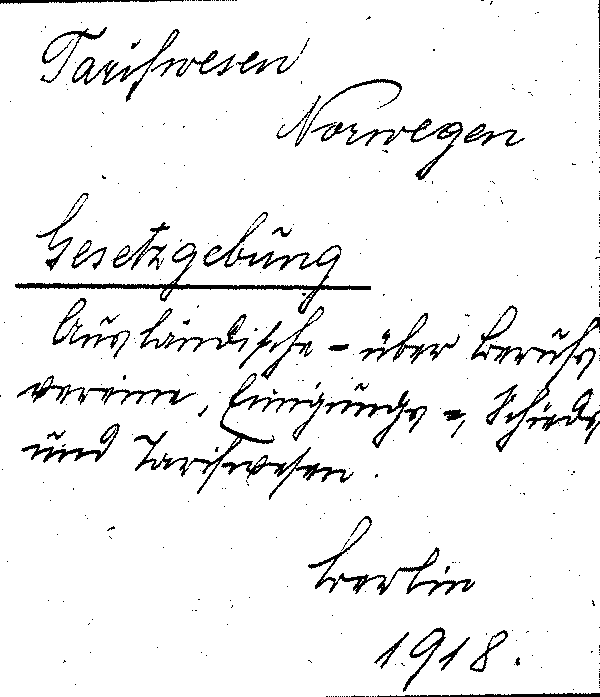 Tarifwesen
Norwegen
Gesetzgebung
Ausländische - über Berufs
vereine, Einigungs =, Schieds
und Tarifwesen.
Berlin
1918.